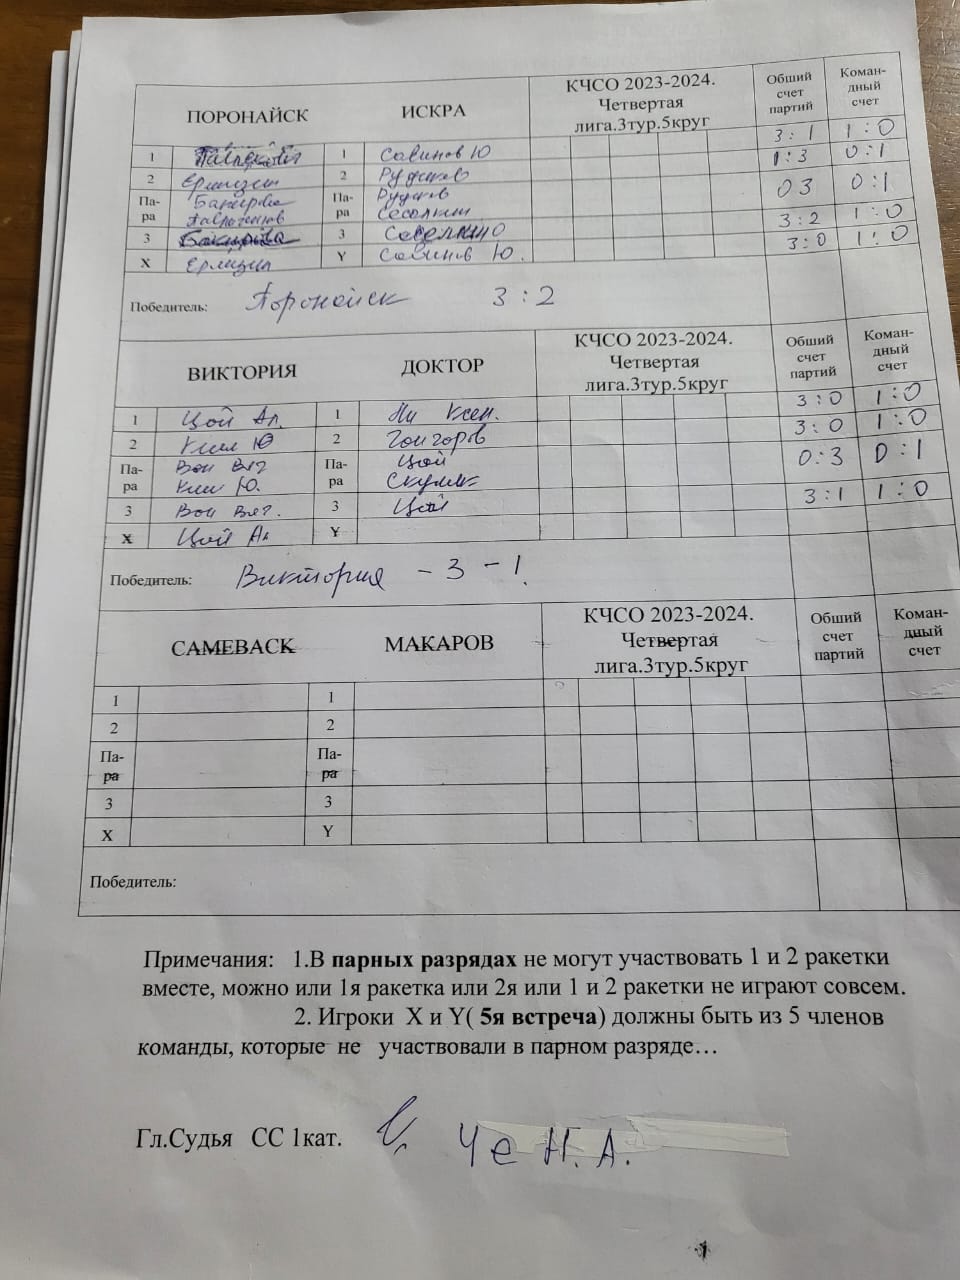 ПОРОНАЙСК ИСКРА КЧСО 2023-2024. Четвертая лига.3тур.5круг Общий счет партий Коман-дный счет
1 1 Савинов Ю 3:1 1:0
2 2 Рудаков 1:3 0:1
Па-ра Па-ра Рудаков 03 0:1
3 3 3:2 1:0
X Y Савинов Ю. 3:0 1:0
Победитель: Поронайск 3:2
ВИКТОРИЯ ДОКТОР КЧСО 2023-2024. Четвертая лига.3тур.5круг Общий счет партий Коман-дный счет
1 Цой Ал. 1 Ни Ксен. 3:0 1:0
2 Ким Ю 2 3:0 1:0
Па-ра Вон Цой 0:3 0:1
Ким Ю.
3 Вон 3 Цой 3:1 1:0
X Цой Ал Y
Победитель: Виктория - 3 - 1.
CAMEBACK МАКАРОВ КЧСО 2023-2024. Четвертая лига.3тур.5круг Общий счет партий Коман-дный счет
1 1
2 2
Па-ра Па-ра
3 3
X Y
Победитель:
Примечания: 1.В парных разрядах не могут участвовать 1 и 2 ракетки
вместе, можно или 1я ракетка или 2я или 1 и 2 ракетки не играют совсем.
2. Игроки X и Y( 5я встреча) должны быть из 5 членов
команды, которые не участвовали в парном разряде…
Гл.Судья СС 1кат. Че Н.А.